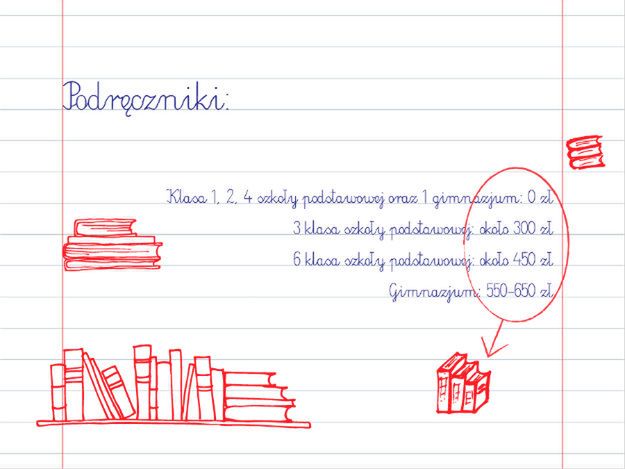 Podręczniki:
Klasa 1, 2, 4 szkoły podstawowej oraz 1 gimnazjum: 0 zł
3 klasa szkoły podstawowej: około 300 zł
6 klasa szkoły podstawowej: około 450 zł
Gimnazjum: 550-650 zł